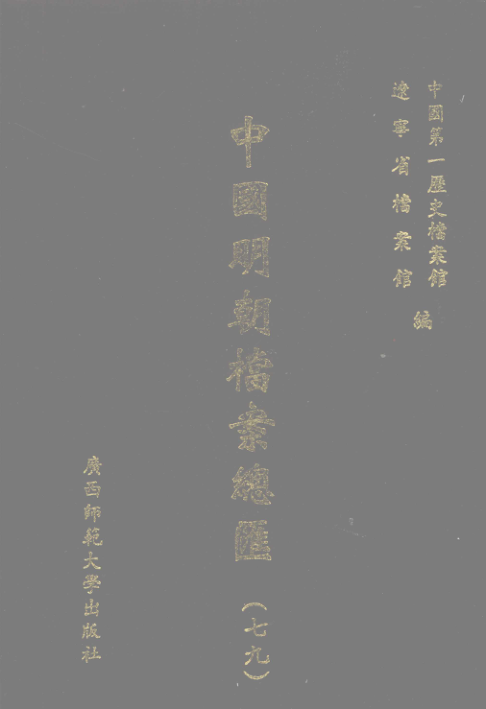 中國第一歷史檔案館
遼寧省檔案館
編
中國明朝檔案總匯
（七九）
廣西師範大學出版社